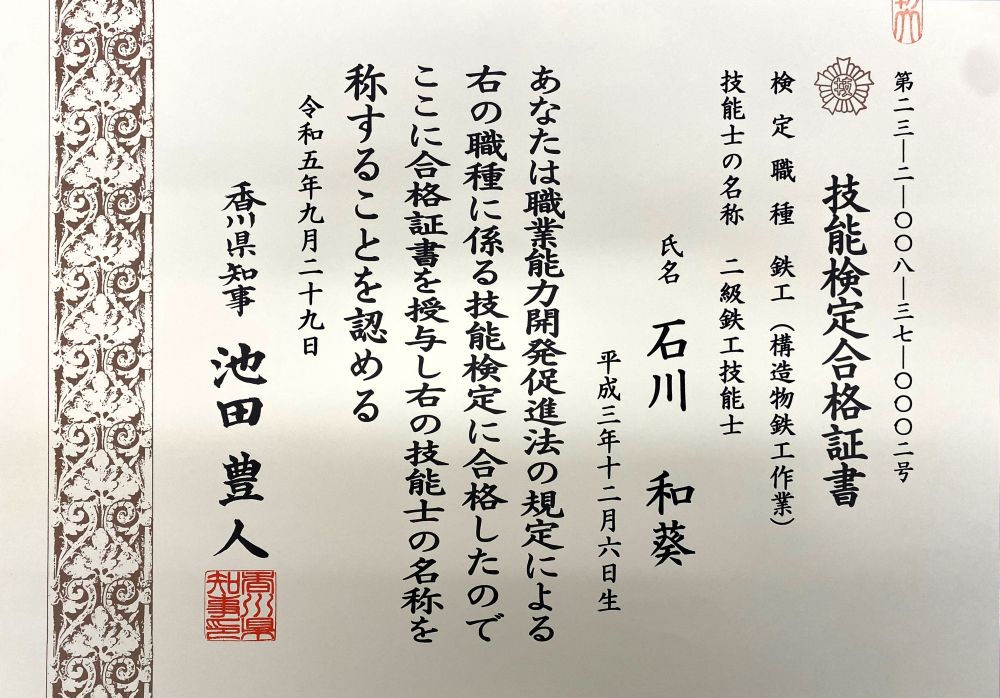 第二三―二―〇〇八―三七―〇〇〇二号
技能検定合格証書
検定職種 鉄工（構造物鉄工作業）
技能士の名称 二級鉄工技能士
氏名 石川 和葵
平成三年十二月六日生
あなたは職業能力開発促進法の規定による
右の職種に係る技能検定に合格したので
ここに合格証書を授与し右の技能士の名称を
称することを認める
令和五年九月二十九日
香川県知事 池田豊人
香川県知事印